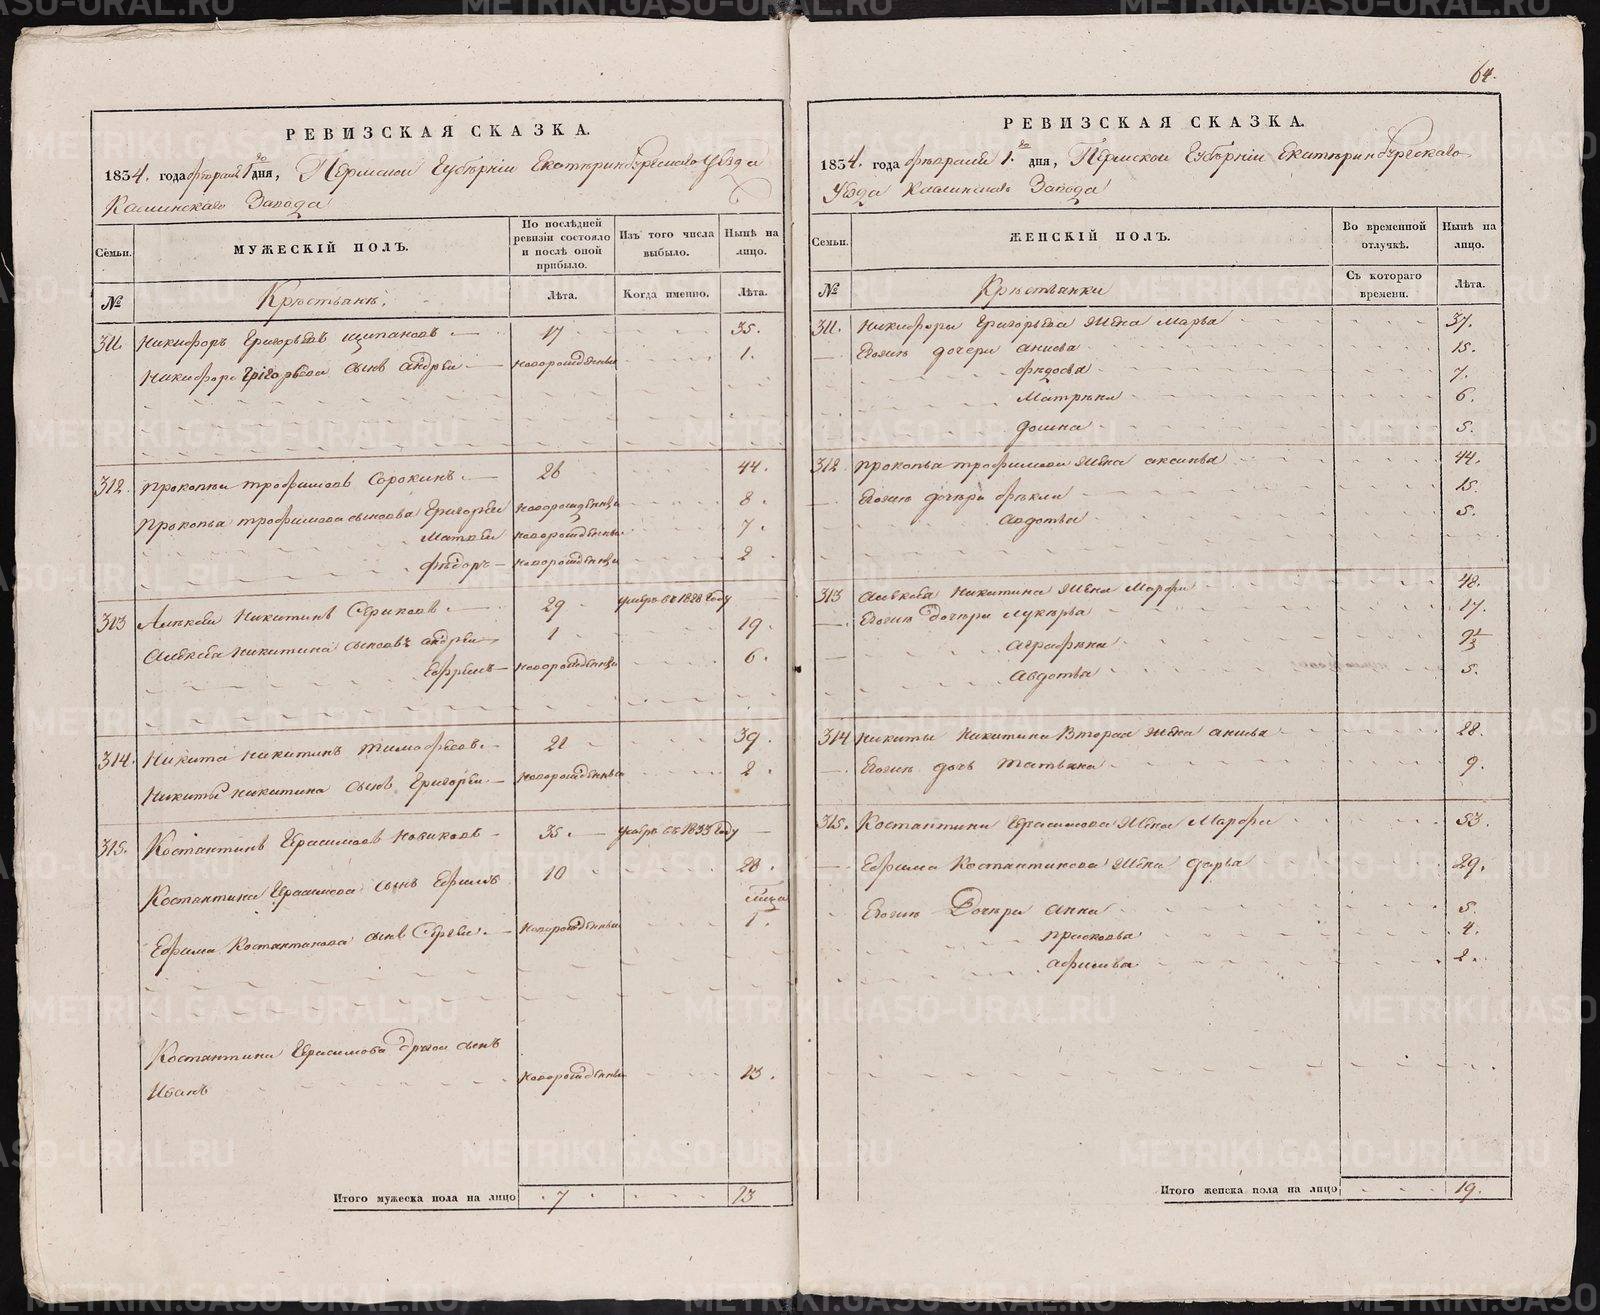 РЕВИЗСКАЯ СКАЗКА.
1834. года февраля 1го дня, Пермской Губѣрніи Екатѣринбургскаго Уѣзда
Заводa
Семьи.
МУЖЕСКІЙ ПОЛЪ.
По послѣдней ревизіи состояло и послѣ оной прибыло.
Изъ того числа выбыло.
Нынѣ на лицо.
№
Крѣстьянѣ.
Лѣта.
Когда именно.
Лѣта.
311. Никифоръ Григорьевъ Щипановъ 17 35.
Никифора Григорьева сынъ Андрей новорожденный 1.
312. Прокопей Трофимовъ Сорокинъ 26 44.
Прокопья Трофимова сыновья Григорей новорожденный 8.
Матвей новорожденный 7.
Фѣдоръ новорожденный 2
313 Алѣксей Никитинъ 29 умеръ въ 1828 году
Алексея Никитина сыновья Андрей 1 19.
Ефремъ новорожденный 6.
314. Никита Никитинъ Тимофеевъ 21 39.
Никиты Никитина сынъ Григорей новорожденный 2.
315. Костантинъ Герасимовъ Новиковъ 35. умеръ въ 1833 году
Костантина Герасимова сынъ Ефимъ 10 28.
Ефима Костантинова сынъ Сергей новорожденный 1.
Костантина Герасимова другой сынъ
Иванъ новорожденный 13.
Итого мужеска пола на лицо 7 13
64.
РЕВИЗСКАЯ СКАЗКА.
1834. года февраля 1.го дня, Пермской Губѣрніи Екатѣринбургскаго
Уѣзда Завода
Семьи.
ЖЕНСКІЙ ПОЛЪ.
Во временной отлучкѣ.
Нынѣ на лицо.
№
Крѣстьянки
Съ котораго времени.
Лѣта.
311. Никифора Григорьева жена Марья 37.
Егожъ дочери Анисья 15.
Фѣдосья 7.
Матрѣна 6.
Домна 5.
312. Прокопья Трофимова жена Аксинья 44.
Егожъ дочѣри Фѣкла 15.
Авдотья 5.
313 Алексея Никитина жена Марфа 48.
Егожъ дочѣри Лукѣрья 17.
Аграфѣна
Авдотья 5.
314 Никиты Никитина вторая жена Анисья 28.
Егожъ дочь Татьяна 9.
315. Костантина Герасимова жена Марфа 53.
Ефима Костантинова жена Дарья 29.
Егожъ дочѣри Анна 5.
Прасковья 4.
Афимья 2.
Итого женска пола на лицо 19.
METRIKI.GASO-URAL.RU